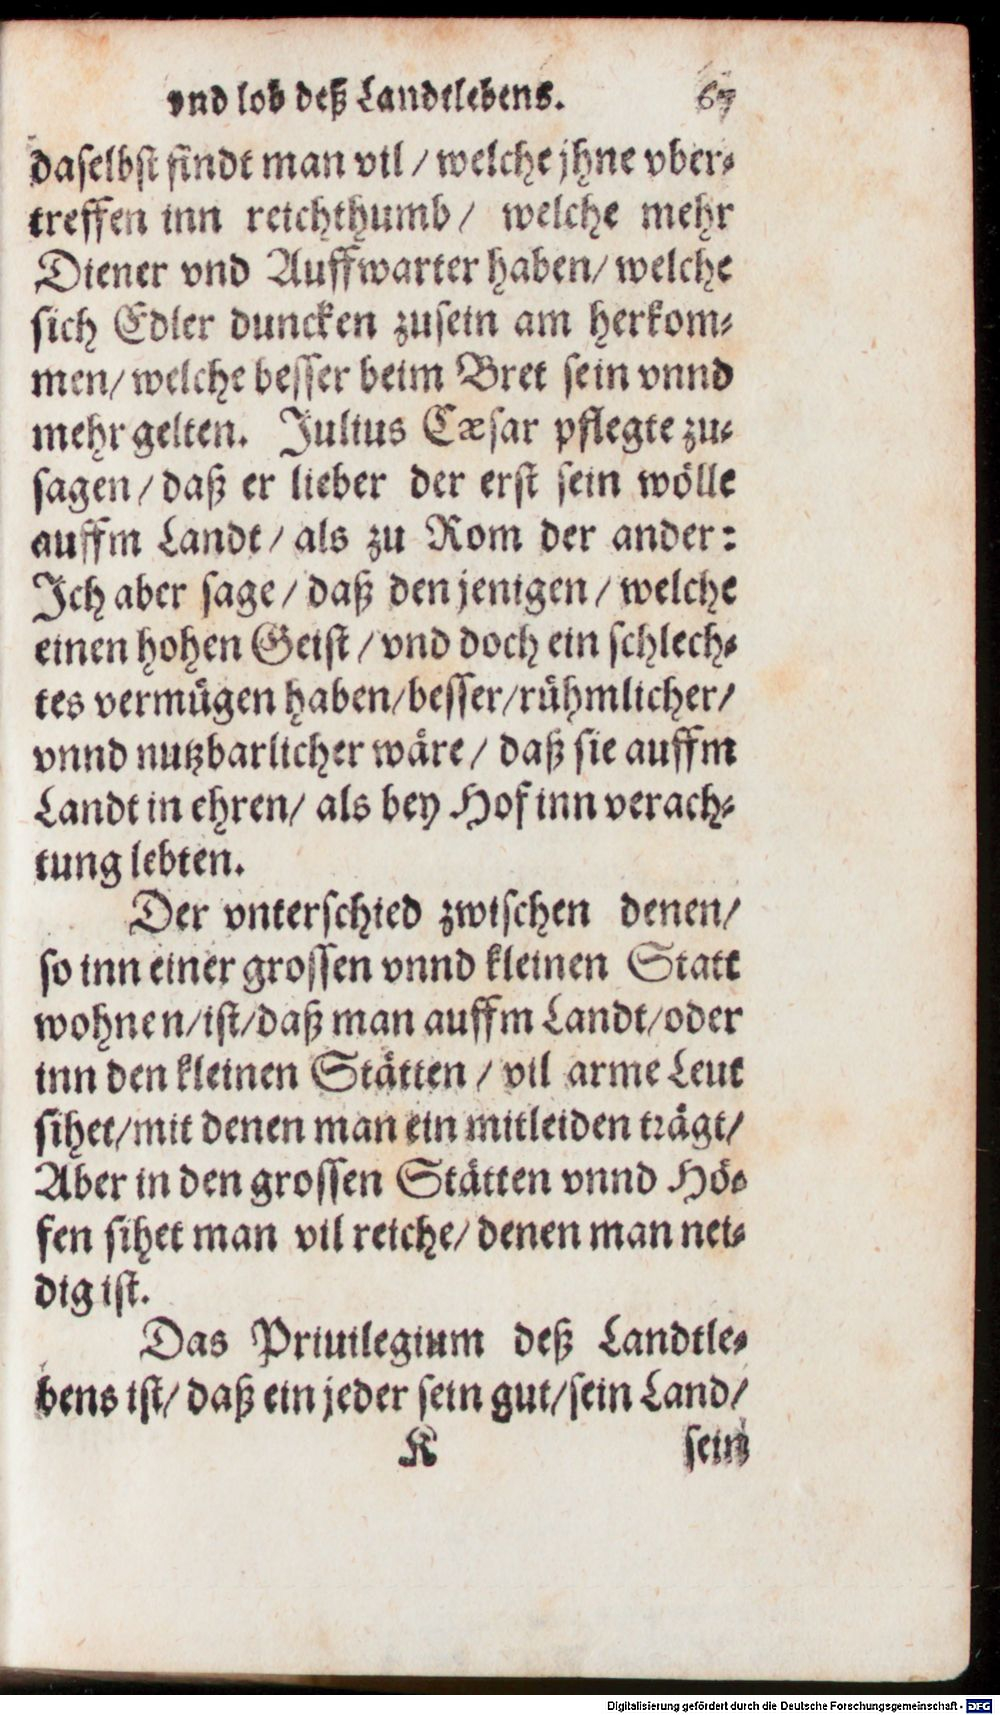 vnd lob deß Landtlebens. 67
daselbst findt man vil / welche jhne vber⸗
treffen inn reichthumb / welche mehr
Diener vnd Auffwarter haben / welche
sich Edler duncken zusein am herkom⸗
men / welche besser beim Bret sein vnnd
mehr gelten. Julius Cæsar pflegte zu⸗
sagen / daß er lieber der erst sein wölle
auffm Landt / als zu Rom der ander:
Ich aber sage / daß den jenigen / welche
einen hohen Geist / vnd doch ein schlech⸗
tes vermügen haben / besser / rühmlicher /
vnnd nutzbarlicher wäre / daß sie auffm
Landt in ehren / als bey Hof inn verach⸗
tung lebten.
Der vnterschied zwischen denen /
so inn einer grossen vnnd kleinen Statt
wohnen / ist / daß man auffm Landt / oder
inn den kleinen Stätten / vil arme Leut
sihet / mit denen man ein mitleiden trägt /
Aber in den grossen Stätten vnnd Hö⸗
fen sihet man vil reiche / denen man nei⸗
dig ist.
Das Priuilegium deß Landtle⸗
bens ist / daß ein jeder sein gut / sein Land /
K sein
Digitalisierung gefördert durch die Deutsche Forschungsgemeinschaft - DFG